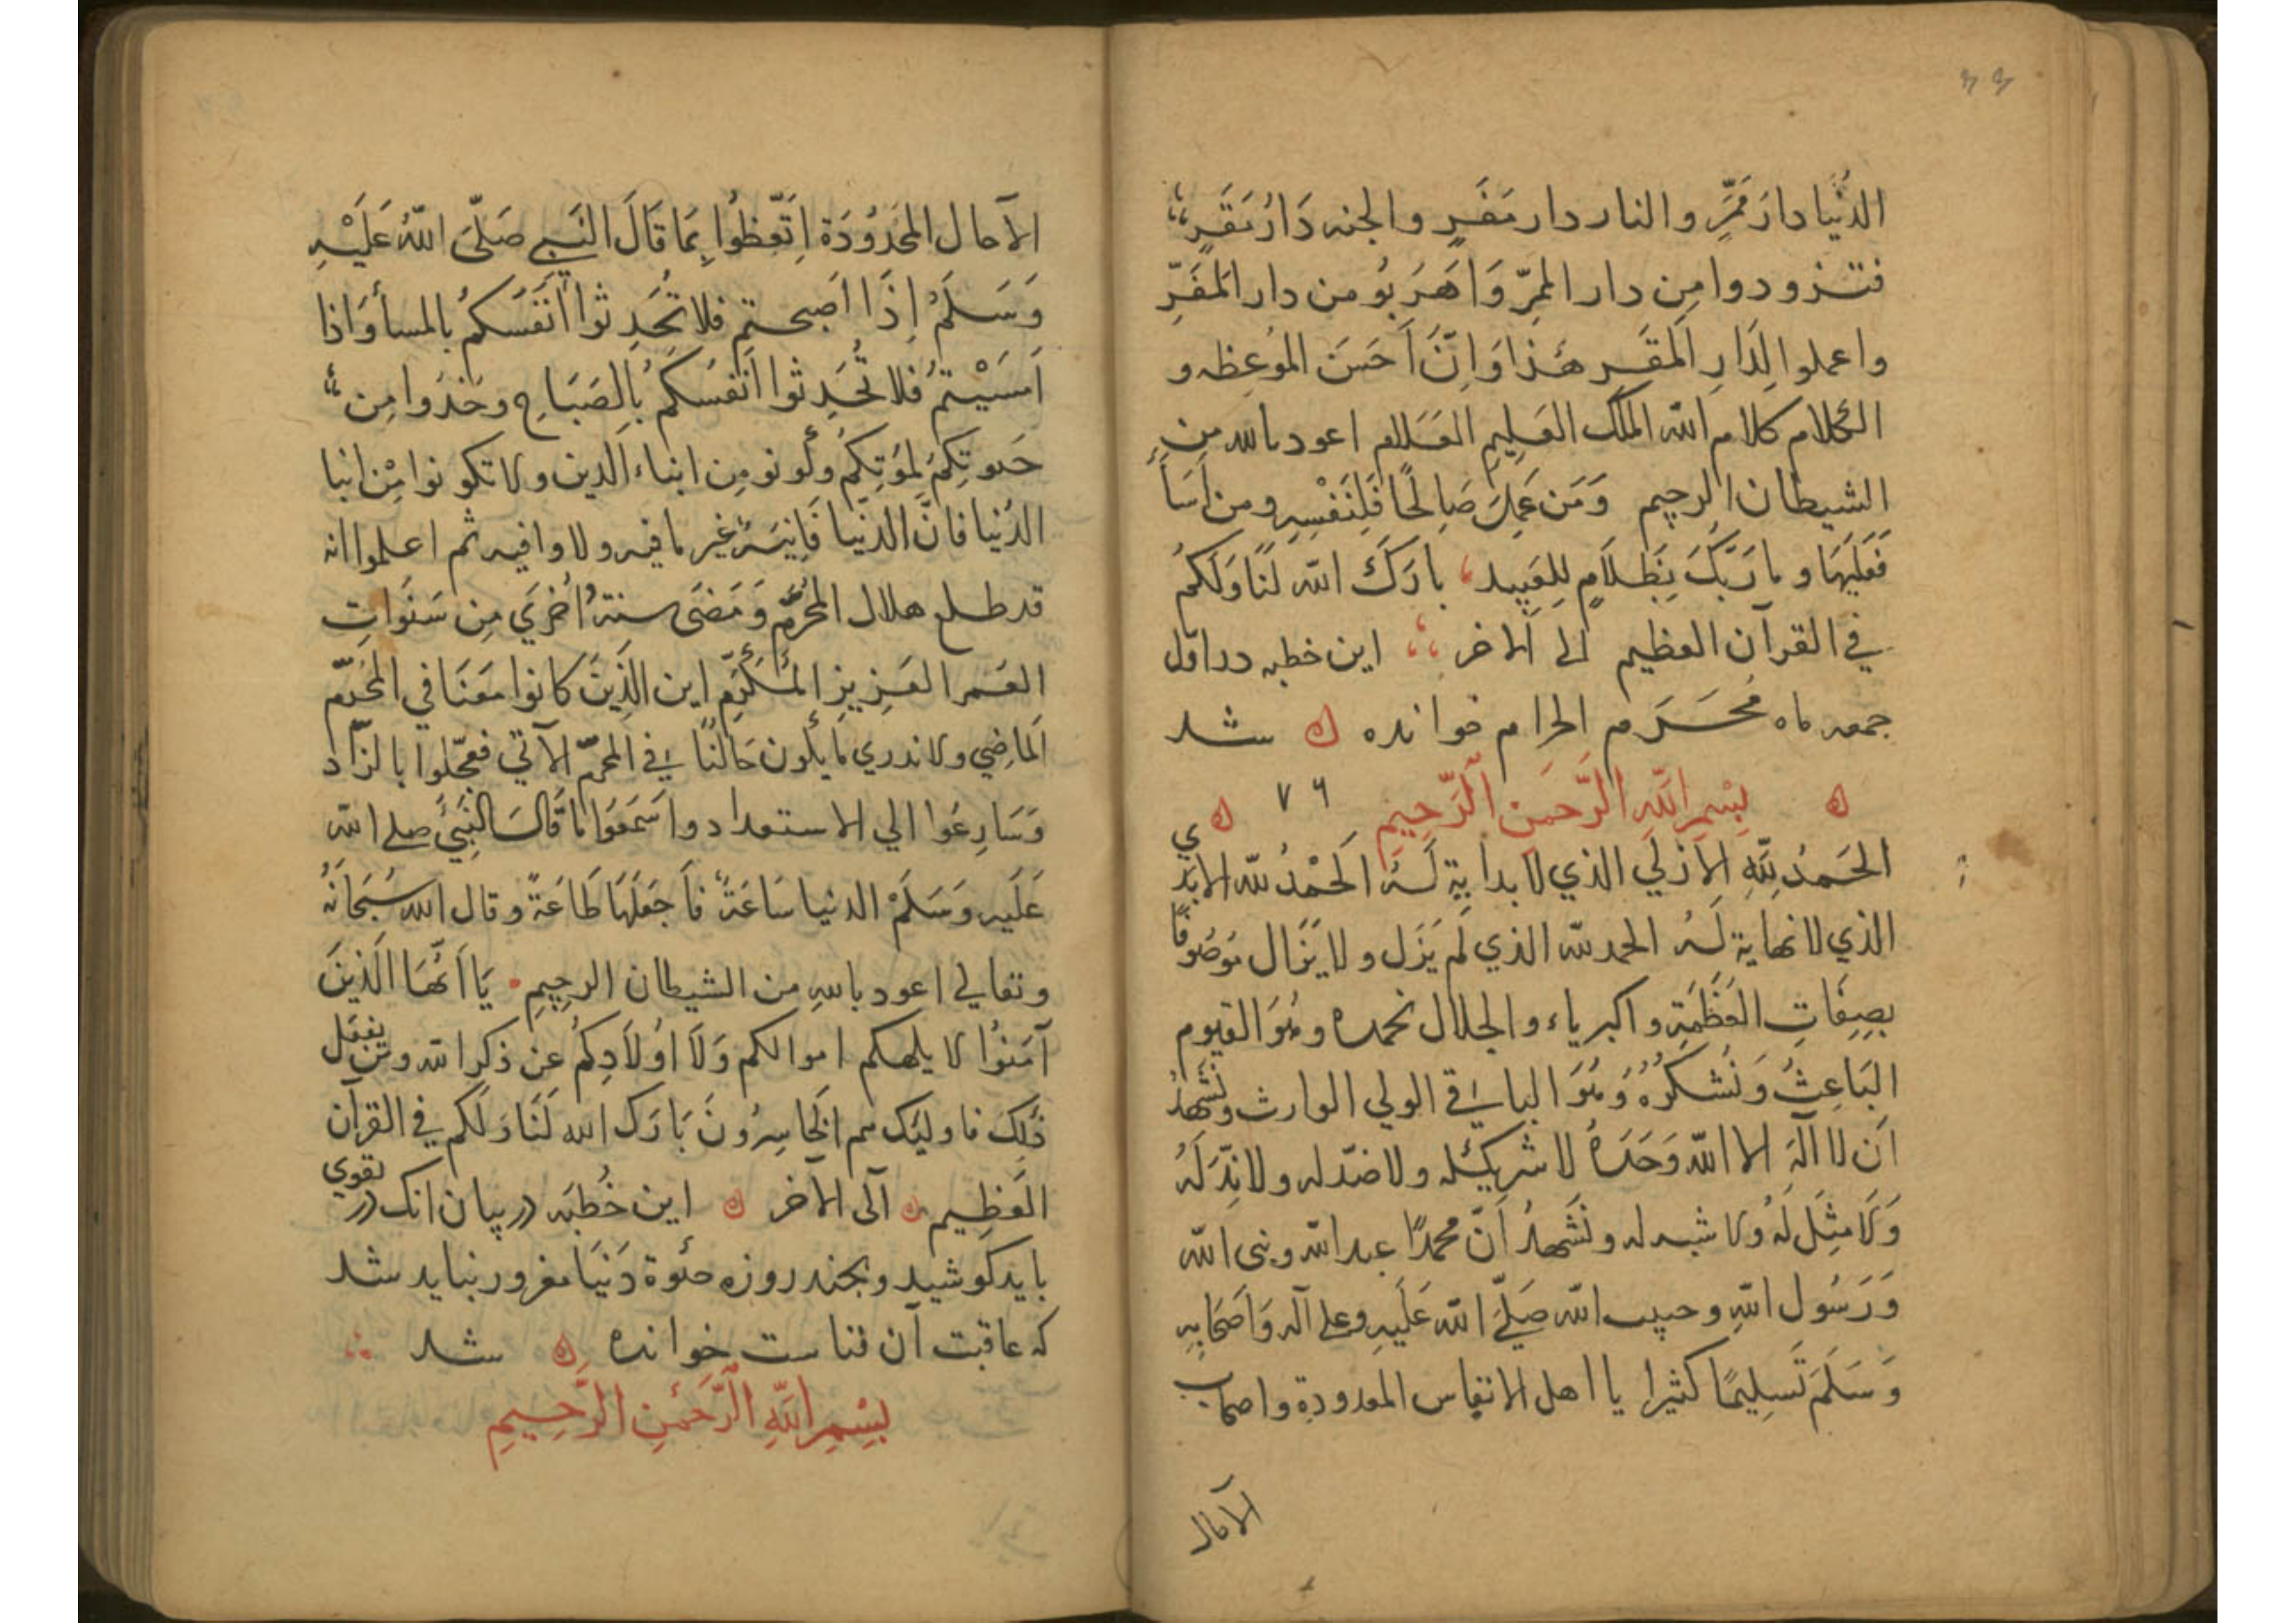 ٣٣
الدُّنْيَا دارُ مَمَرٍّ والنار دار مَفَرٍ والجنه دَارُ مَقَرٍ
فتزودوا مِن دار الممِرّ وَاهَرَبُو من دار المَفَرِّ
واعملوا لِدَارِ المَقَرِ هَذا وَاِنَّ اَحَسَنَ المُوَعِظه و
الكلام كلام الله الملك العَلِيمِ العَلام اعود بالله مِن
الشيطان الرجيم وَمَن عَمِلَ صَالِحًا فَلِنَفْسِهِ ومن اَسَأَ
فَعَلَيهَا وما رَبُّكَ بِظَلاَمٍ لِلعَبِيد بارَكَ الله لَنَا وَلَكُم
في القرآن العظيم الى الاخر این خطبه در اول
جمعه ماه مُحَرَم الحرام خوانده ه شد
ه بِسْمِ اللَّهِ الرَّحمَنِ الرَّحِيمِ ٧٦ ه
الحَمدُ لِلَّهِ الاَزلَي الذي لا بدايةِ لَهُ الحَمْدُ لله الابدي
الذي لا نهاية لَهُ الحمد لله الذي لَم يَزَل ولا يَزَال مَوصُوفًا
بِصِفَاتِ العَظَمَةِ واكبرياء والجلال نحمده وهُوَ القيوم
البَاعِثُ وَنَشكُرُهُ وَهُوَ الباقي الولي الوارث ونَشَهدُ
اَن لا اَلَهَ الا الله وَحَدَهُ لا شريكله ولا ضدّله ولا نِدَّ لَهُ
وَلَا مِثِلَ لَهُ ولا شبه له ونَشَهدُ اَنّ محمدًا عبد الله ونبى الله
وَرَسُول اللهِ وحبيب الله صَلَّى الله عَلَيهِ وعلى آله وَاَصَحَابِهِ
وَسَلَمَ تَسلِيمًا كثيرا يا اهل الانفاس المعدودة واصحاب
الآمال
الآمال المَحَدُودَة اِتَّعِظُوا بِمَا قَالَ النَبِي صَلّى اللهُ عَلَيْهِ
وَسَلَمُ اِذَا اَصبحتم فلا تُحَدِثوا اَنَفَسَكُم بالمسأ وَاذا
اَمسَيْتُم فلا تُحَدِثوا اَنَفسَكُم بِالصَبَاحِ وخذوا مِن
حَيوتِكُم لِمَوتِكُم وكُونو مِن ابناء الدين ولا تكونوا مِن ابنا
الدُنيا فاَنَّ الدنّيا فَانِيَة غير ما فيه ولا وافيه ثم اعلموا انه
قد طلع هلال المُحُرَّم وَمَضَى سنة اُخرَي مِن سَنَواتِ
العَمر العَزِيزِ المُكَرَّم اين الَّذِينَ كانوا مَعَنَا في المُحَرّم
الَماضِي ولا ندري ما يكون حَالُنَا في المحرّم الآتي فعجّلوا بالزّاد
وَسَارِعُوا الي الاستعداد واسَمَعُوا ما قَالَ النَبِيّ صلى الله
عَلَيه وَسَلَمَ الدنيا سَاعَةً فاَجعَلَهَا طَاعَةً وقال الله سُبَحَانَهُ
وتعالي اعود باللهِ من الشيطان الرجيم يَا اَيُّهَا الَذِينَ
آمَنُوا لا يلهكم اموالكم وَلَا اَولَادِكُم عَن ذكر الله ومَن يفعَل
ذَلِكَ فاوليک هم الخَاسِرُونَ بَارَك الله لَنَا وَلَكُم في القرآن
العَظِيم ه آلى الآخر ه این خُطبَه در بیان انک در تقوي
باید کوشید وبچند روزه حیٰوة دَنیَا مغرور نباید شد
که عاقبت آن فناست خوانده ه شد
بِسْمِ اللَّهِ الرَّحَمنِ الرَّحِيمِ